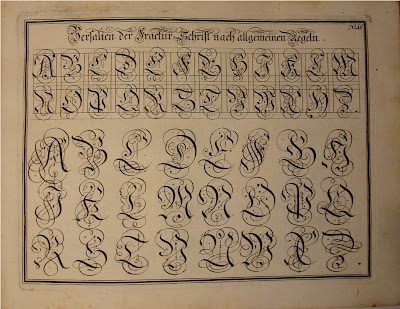 Versalien der Fractur-Schrift nach allgemeinen Regeln.
A B C D E F G H I K L M
N O P Q R S T V W X Y Z
A B C D E F G H
I K L M N O P Q
R S T V U W X Z